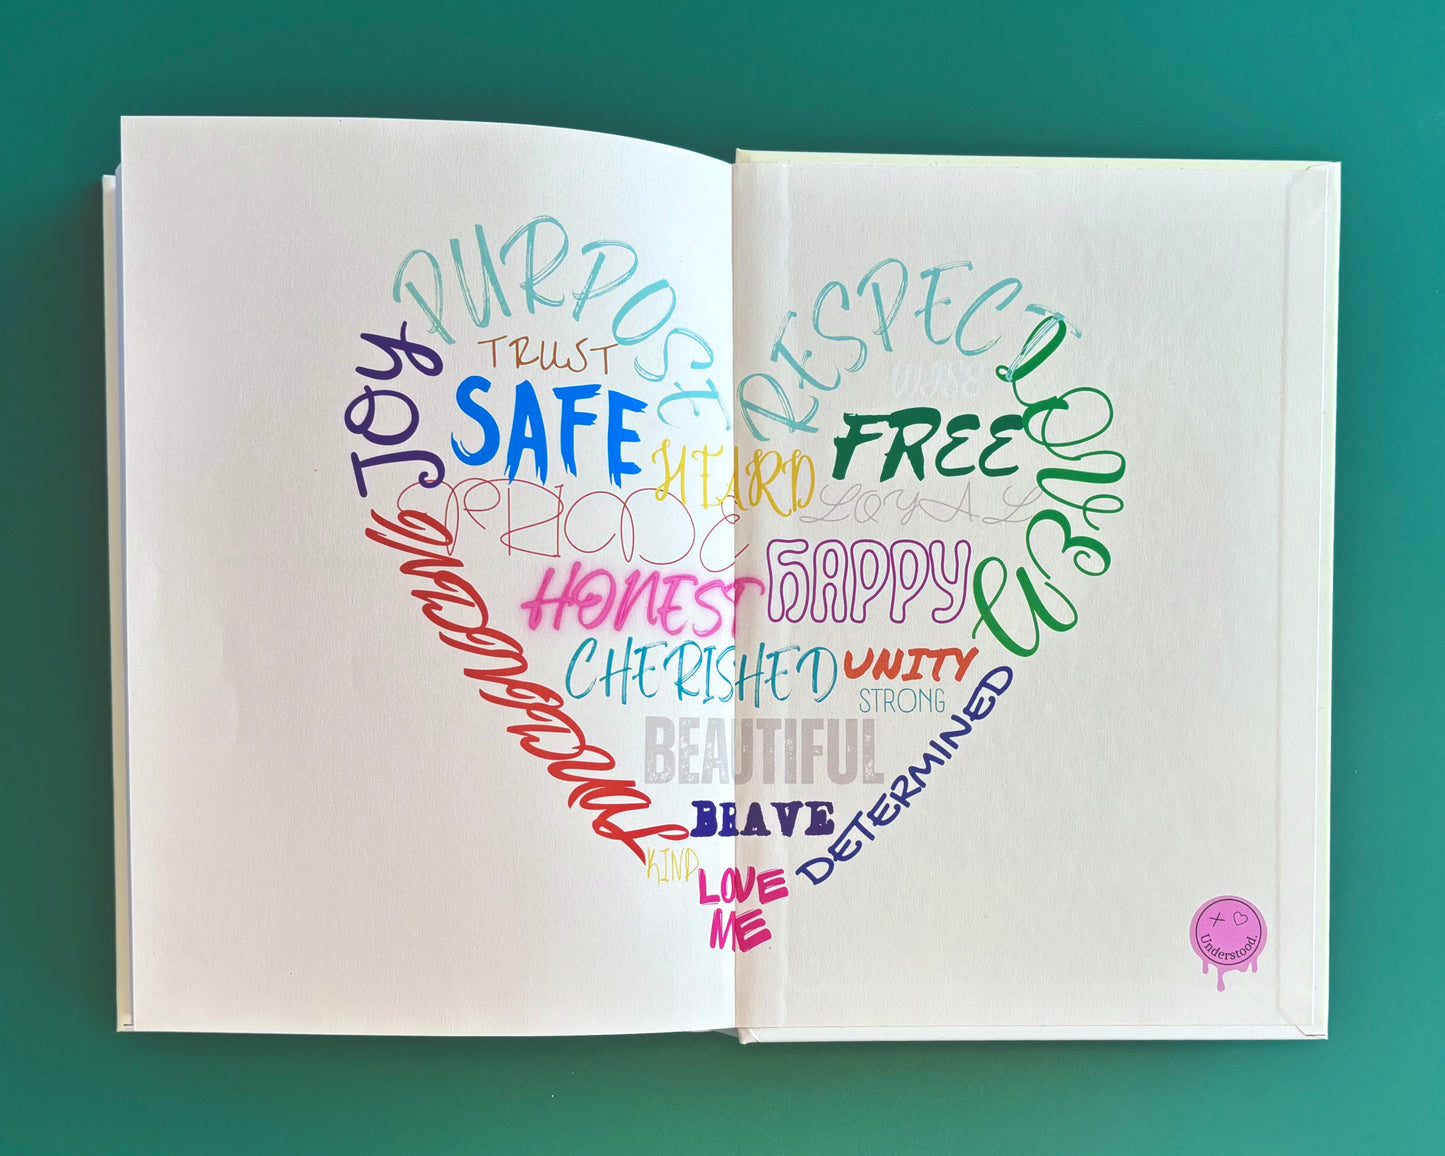 PURPOSE
RESPECT
JOY
TRUST
WISE
LOVED
SAFE
FREE
HEARD
PRIDE
LOYAL
HAPPY
HONEST
CHERISHED
UNITY
STRONG
DETERMINED
BEAUTIFUL
BRAVE
KIND
LOVE
ME
Understood.